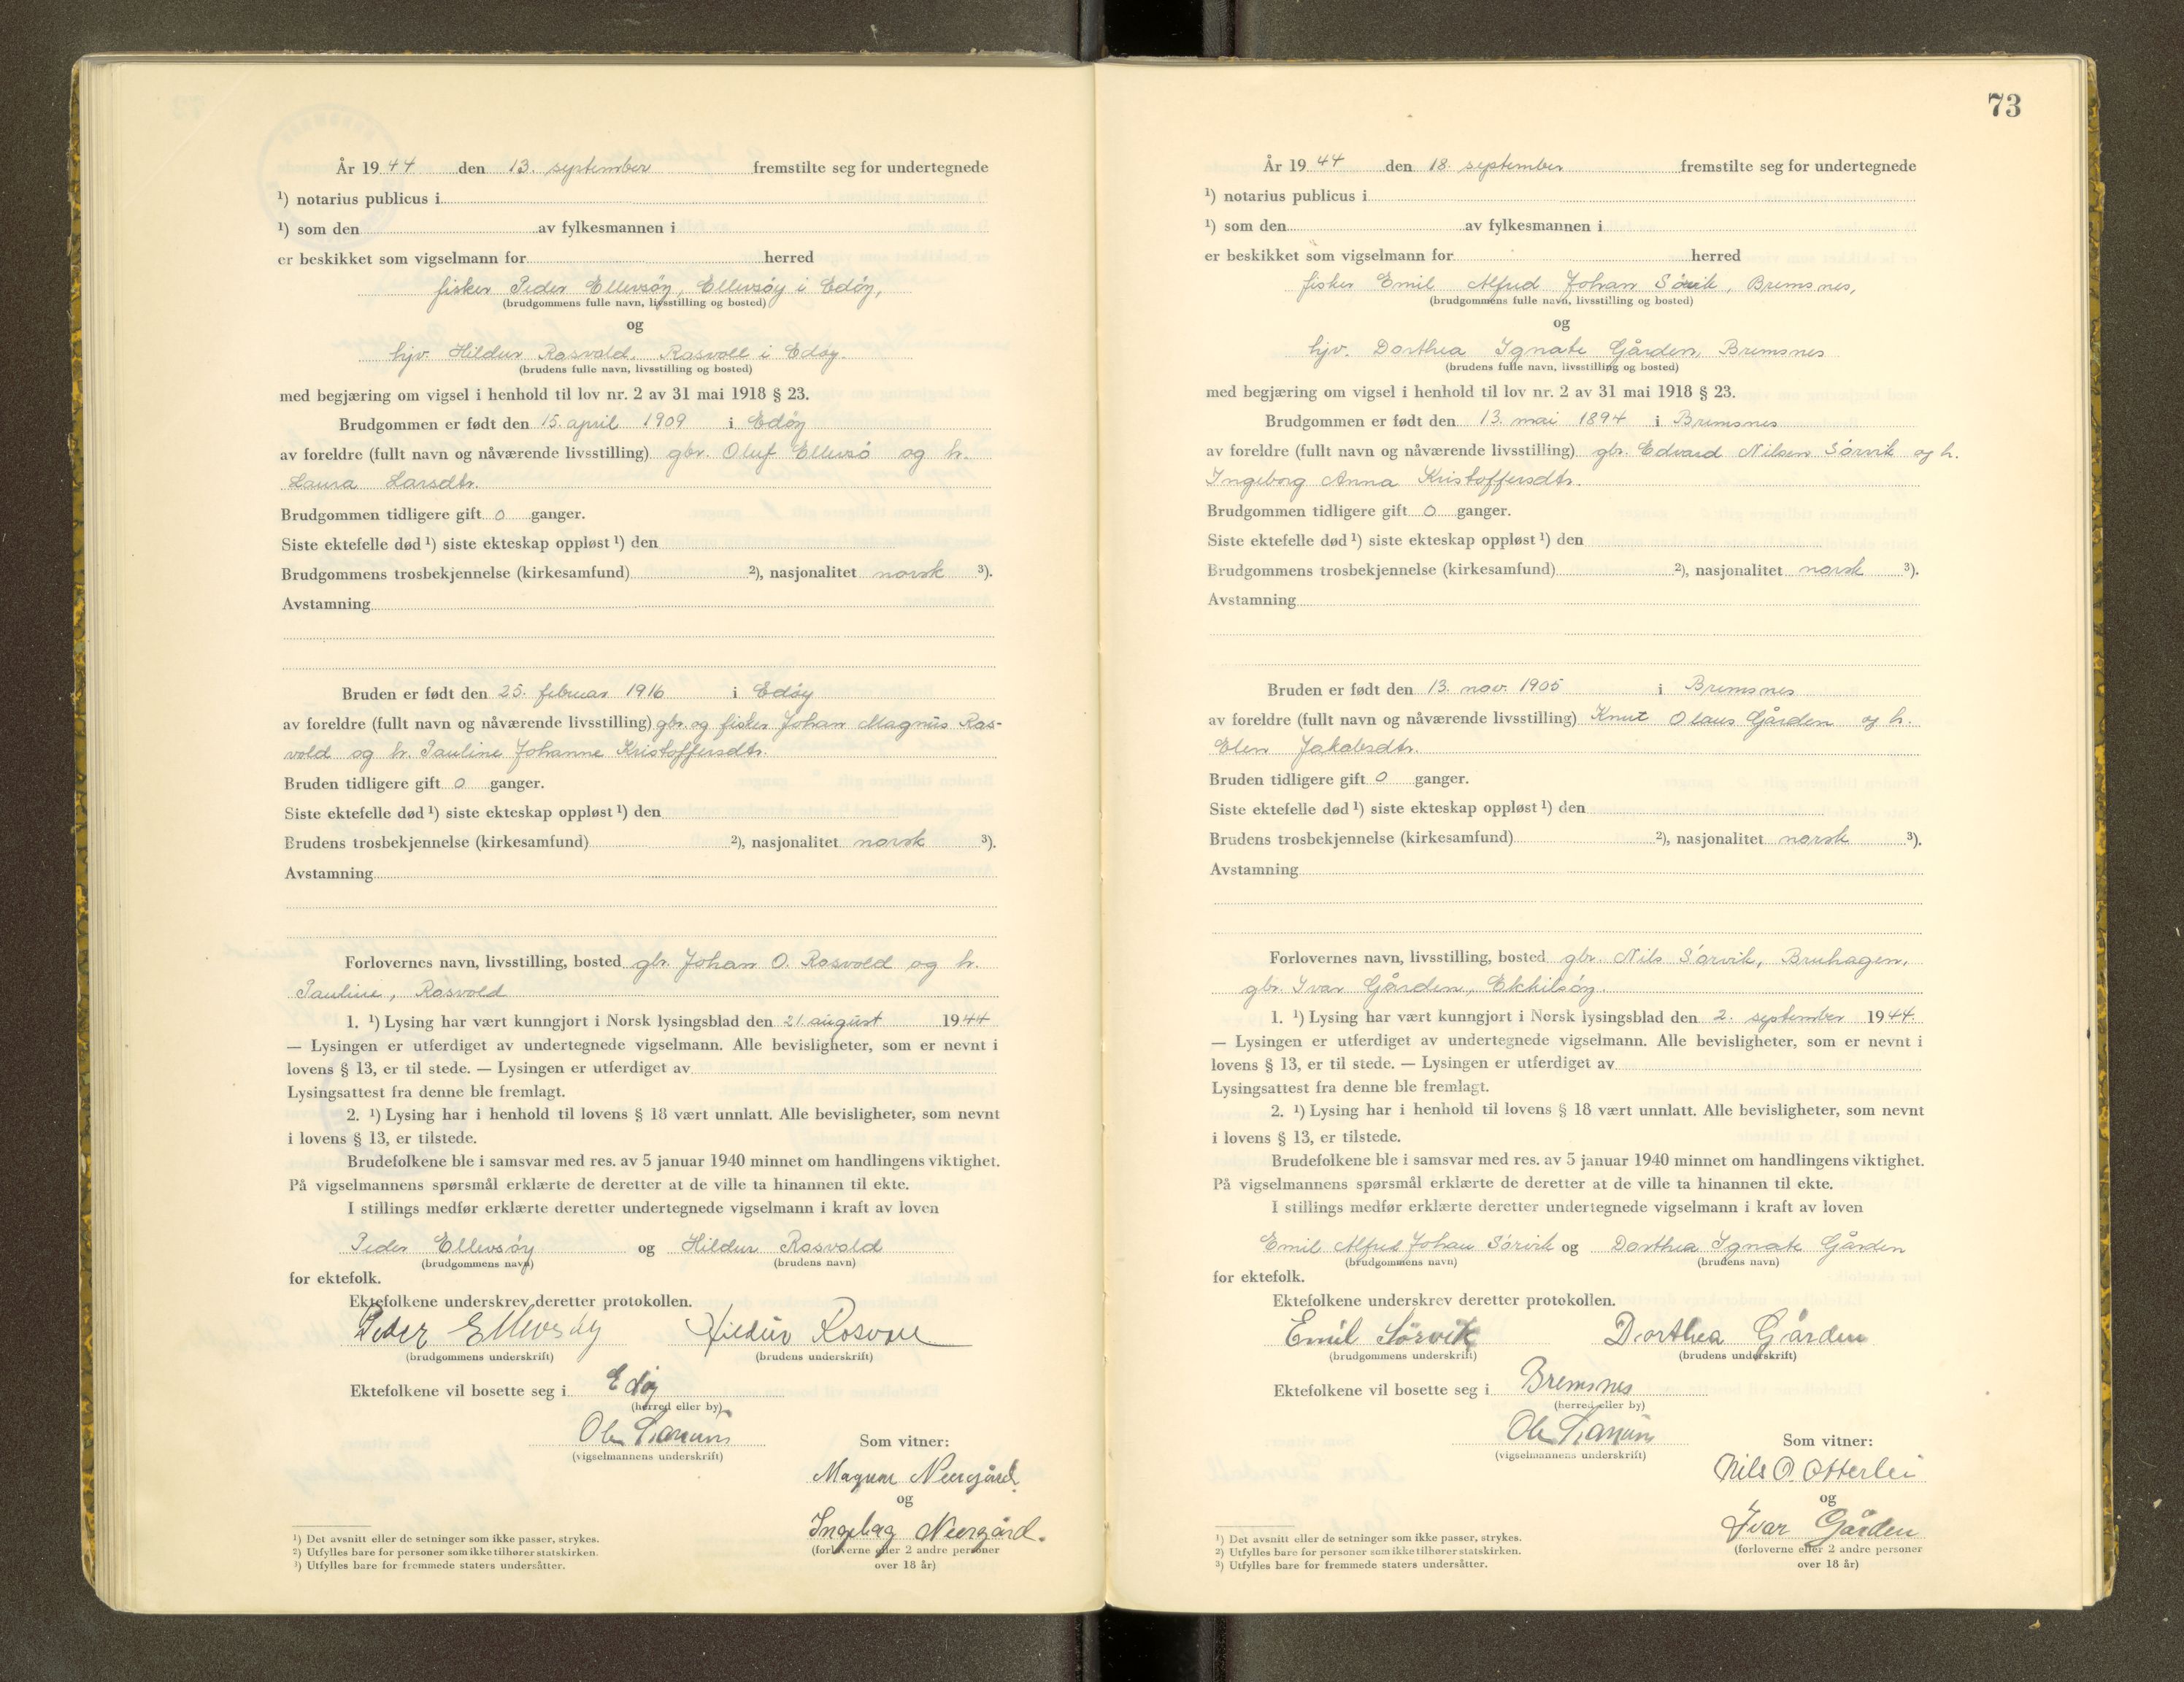 År 1944 den 13. september fremstilte seg for undertegnede
¹) notarius publicus i
¹) som den av fylkesmannen i
er beskikket som vigselmann for herred
fisker Peder Ellevsøy, Ellevsøy i Edøy,
(brudgommens fulle navn, livsstilling og bosted)
og
hjv. Hildur Rosvold. Rosvoll i Edøy.
(brudens fulle navn, livsstilling og bosted)
med begjæring om vigsel i henhold til lov nr. 2 av 31 mai 1918 § 23.
Brudgommen er født den 15. april 1909 i Edøy
av foreldre (fullt navn og nåværende livsstilling) gbr. Oluf Ellevsö og h.
Laura Larsdtr.
Brudgommen tidligere gift 0 ganger.
Siste ektefelle død ¹) siste ekteskap oppløst ¹) den
Brudgommens trosbekjennelse (kirkesamfund) ²), nasjonalitet norsk ³).
Avstamning
Bruden er født den 25. februar 1916 i Edøy
av foreldre (fullt navn og nåværende livsstilling) gbr. og fisker Johan Magnus Ros-
vold og h. Pauline Johanne Kristoffersdtr.
Bruden tidligere gift 0 ganger.
Siste ektefelle død ¹) siste ekteskap oppløst ¹) den
Brudens trosbekjennelse (kirkesamfund) ²), nasjonalitet norsk ³).
Avstamning
Forlovernes navn, livsstilling, bosted gbr. Johan O. Rosvold og h.
Pauline, Rosvold
1. ¹) Lysing har vært kunngjort i Norsk lysingsblad den 21. august 1944
— Lysingen er utferdiget av undertegnede vigselmann. Alle bevisligheter, som er nevnt i
lovens § 13, er til stede. — Lysingen er utferdiget av
Lysingsattest fra denne ble fremlagt.
2. ¹) Lysing har i henhold til lovens § 18 vært unnlatt. Alle bevisligheter, som nevnt
i lovens § 13, er tilstede.
Brudefolkene ble i samsvar med res. av 5 januar 1940 minnet om handlingens viktighet.
På vigselmannens spørsmål erklærte de deretter at de ville ta hinannen til ekte.
I stillings medfør erklærte deretter undertegnede vigselmann i kraft av loven
Peder Ellevsøy og Hildur Rosvold
(brudgommens navn) (brudens navn)
for ektefolk.
Ektefolkene underskrev deretter protokollen.
Peder Ellevsøy Hildur Rosvoll
(brudgommens underskrift) (brudens underskrift)
Ektefolkene vil bosette seg i Edøy
(herred eller by)
Ole
(vigselmannens underskrift)
Som vitner:
Magnar Neergård.
og
Ingebog Neergård.
(forloverne eller 2 andre personer
over 18 år)
¹) Det avsnitt eller de setninger som ikke passer, strykes.
²) Utfylles bare for personer som ikke tilhører statskirken.
³) Utfylles bare for fremmede staters undersåtter.
73
År 1944 den 18. september fremstilte seg for undertegnede
¹) notarius publicus i
¹) som den av fylkesmannen i
er beskikket som vigselmann for herred
fisker Emil Alfred Johan Sörvik, Bremsnes,
(brudgommens fulle navn, livsstilling og bosted)
og
hjv. Dorthea Ignate Gården, Bremsnes
(brudens fulle navn, livsstilling og bosted)
med begjæring om vigsel i henhold til lov nr. 2 av 31 mai 1918 § 23.
Brudgommen er født den 13. mai 1894 i Bremsnes
av foreldre (fullt navn og nåværende livsstilling) gbr. Edvard Nilsen Sörvik og h.
Ingeborg Anna Kristoffersdtr.
Brudgommen tidligere gift 0 ganger.
Siste ektefelle død ¹) siste ekteskap oppløst ¹) den
Brudgommens trosbekjennelse (kirkesamfund) ²), nasjonalitet norsk ³).
Avstamning
Bruden er født den 13. nov. 1905 i Bremsnes
av foreldre (fullt navn og nåværende livsstilling) Knut Olaus Gården og h.
Elen Jakobsdtr.
Bruden tidligere gift 0 ganger.
Siste ektefelle død ¹) siste ekteskap oppløst ¹) den
Brudens trosbekjennelse (kirkesamfund) ²), nasjonalitet norsk ³).
Avstamning
Forlovernes navn, livsstilling, bosted gbr. Nils Sörvik, Bruhagen,
gbr. Ivar Gården, Ekkilsöy.
1. ¹) Lysing har vært kunngjort i Norsk lysingsblad den 2. september 1944.
— Lysingen er utferdiget av undertegnede vigselmann. Alle bevisligheter, som er nevnt i
lovens § 13, er til stede. — Lysingen er utferdiget av
Lysingsattest fra denne ble fremlagt.
2. ¹) Lysing har i henhold til lovens § 18 vært unnlatt. Alle bevisligheter, som nevnt
i lovens § 13, er tilstede.
Brudefolkene ble i samsvar med res. av 5 januar 1940 minnet om handlingens viktighet.
På vigselmannens spørsmål erklærte de deretter at de ville ta hinannen til ekte.
I stillings medfør erklærte deretter undertegnede vigselmann i kraft av loven
Emil Alfred Johan Sörvik og Dorthea Ignate Gården
(brudgommens navn) (brudens navn)
for ektefolk.
Ektefolkene underskrev deretter protokollen.
Emil Sörvik Dorthea Gården
(brudgommens underskrift) (brudens underskrift)
Ektefolkene vil bosette seg i Bremsnes
(herred eller by)
Ole
(vigselmannens underskrift)
Som vitner:
Nils O. Otterlei
og
Ivar Gården
(forloverne eller 2 andre personer
over 18 år)
¹) Det avsnitt eller de setninger som ikke passer, strykes.
²) Utfylles bare for personer som ikke tilhører statskirken.
³) Utfylles bare for fremmede staters undersåtter.